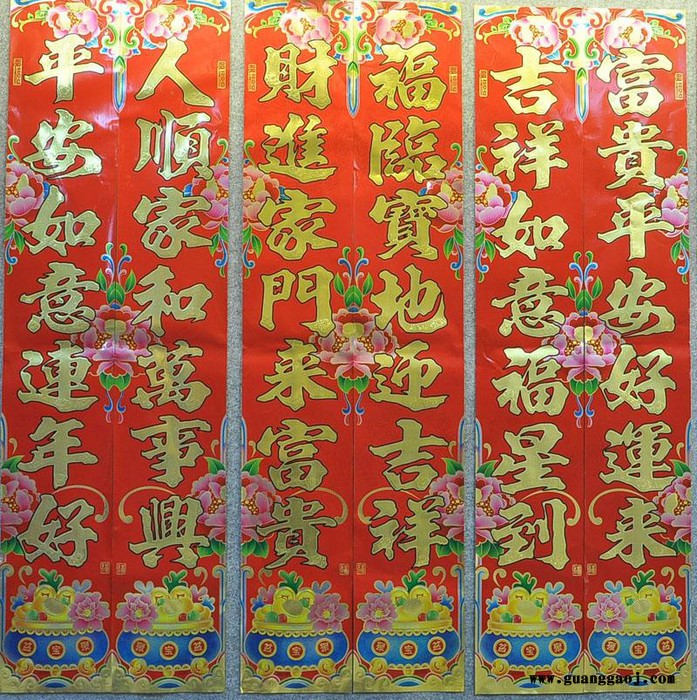 富貴平安好運来
吉祥如意福星到
福臨寶地迎吉祥
財進家門来富貴
人順家和萬事興
平安如意連年好
www.guanggaoj.com